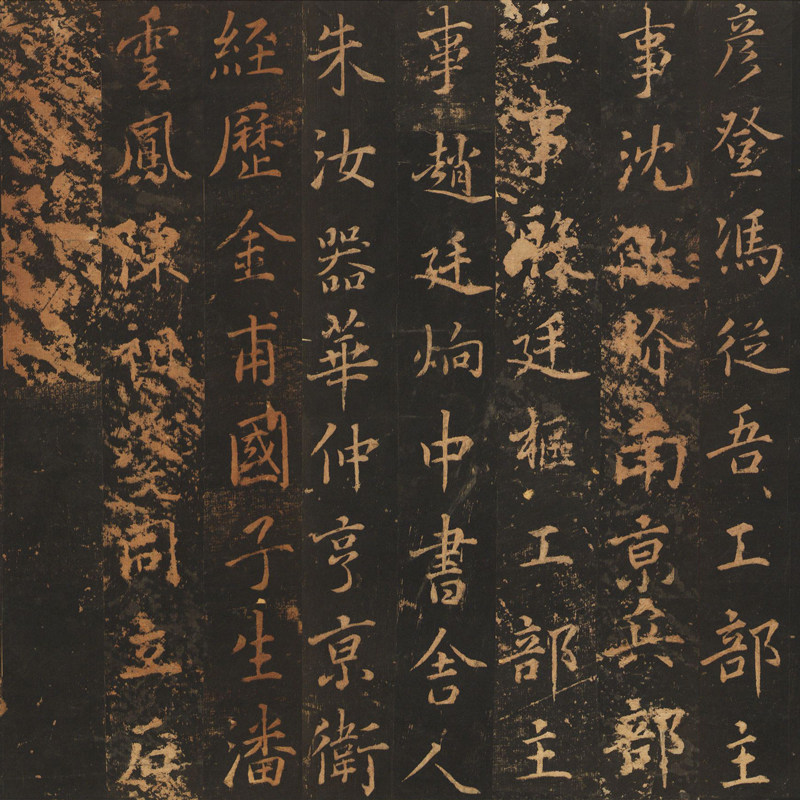 彦登馮從吾工部主
事沈𣏌南京兵部
主事廷樞工部主
事趙廷炯中書舍人
朱汝器華仲亨京衛
經歷金甫國子生潘
雲鳳陳祖同立石